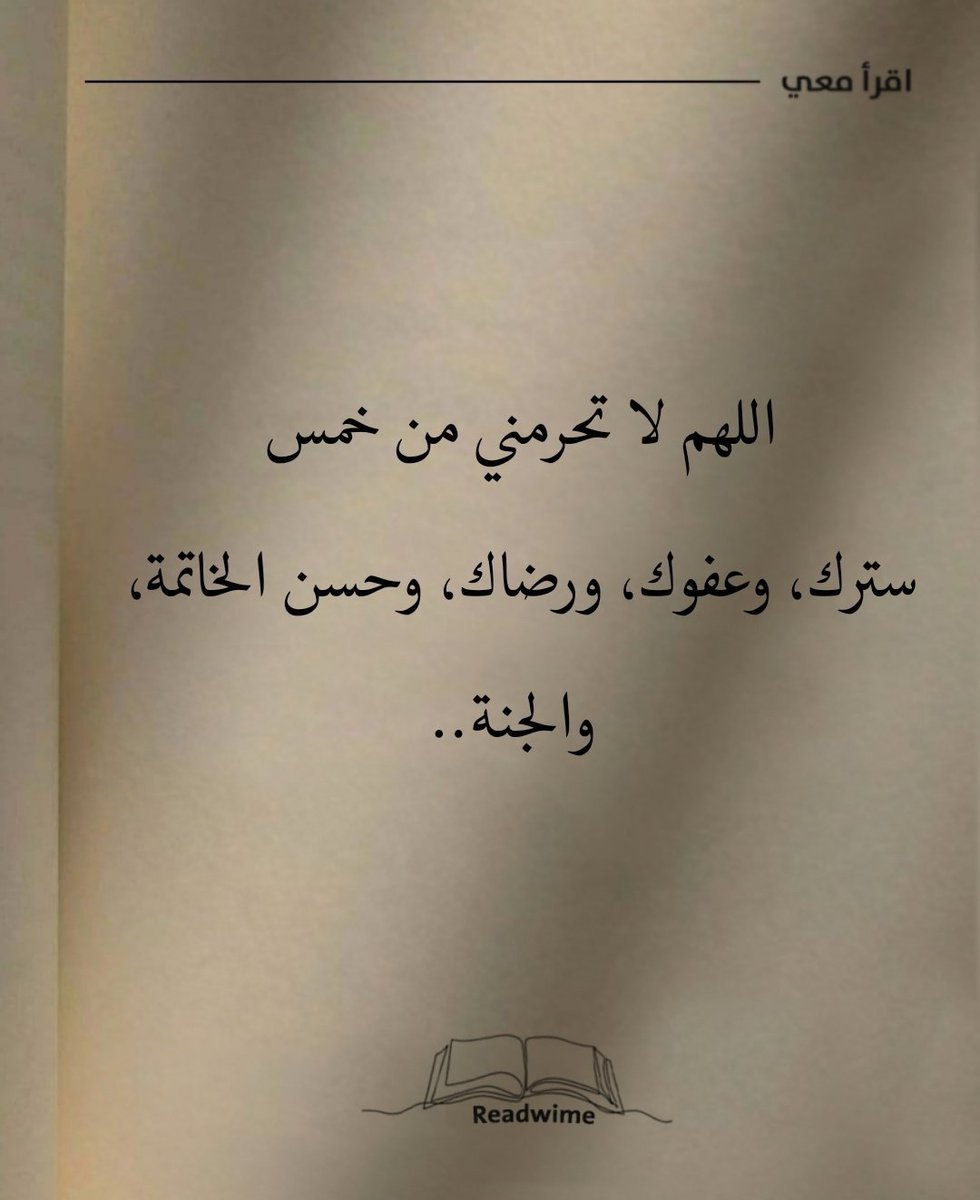 اقرأ معي
اللهم لا تحرمني من خمس
سترك، وعفوك، ورضاك، وحسن الخاتمة،
والجنة..
Readwime